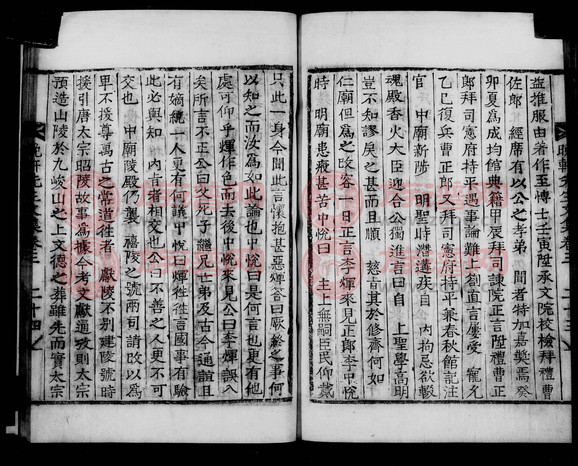 晚軒先生文集卷三 二十三
益推服由著作至博士壬寅陞承文院校檢拜禮曹
佐郎 經席有以公之孝弟 聞者特加嘉奬焉癸
卯夏爲成均館典籍甲辰拜司諫院正言陞禮曹
郎拜司憲府持平遇事論難上劄直言屢受 寵允
乙巳復兵曹正郎又拜司憲府持平兼春秋館記注
官 中廟新陟 明聖時遘疾自 內拘忌欲輟
魂殿香火大臣迎合公獨進言曰 上聖學高明
豈不知謬戾之甚而且順 慈旨其於修齊何如
仁廟但爲之改容一日正言李煇來見正郎李中悅
時 明廟患痘甚苦中悅曰 主上無嗣臣民仰戴
只此一身今聞此言懷抱甚惡煇答曰厥終之事何
以知之而汝爲如此論也中悅曰是何言也更有他
處可仰乎煇作色而去後中悅來見公曰李煇誤入
矣所言不正公曰父死子繼兄亡弟及古今通誼且
有嫡統一人更有何議中悅曰煇往徃言國事有驗
此必與知 內言者相交也公曰不善之人更不可
交也 中廟陵殿仍襲 禧陵之號兩司請改以爲
卑不援尊萬古之常道往者 獻陵不別建陵號時
援引唐太宗昭陵故事爲據今考文獻通攷則太宗
預造山陵於九嵕山之上文德之葬雖先而實太宗
晚軒先生文集卷三 二十四